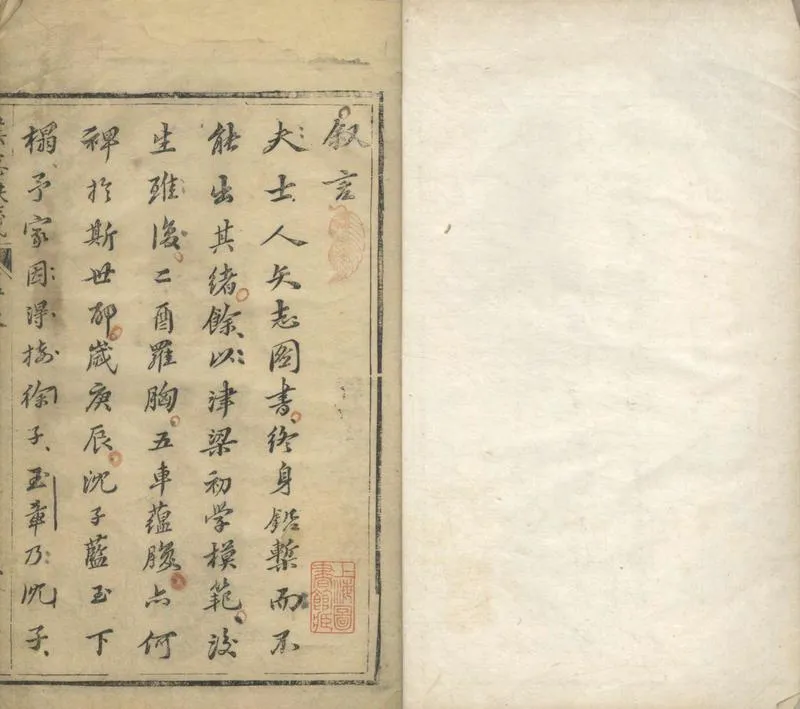 叙言
夫士人矢志图書終身鉛槧而不
能出其緒餘以津梁初學模範後
生雖復二酉羅胸五車蘊腹亦何
裨於斯世耶歲庚辰沈子藍玉下
榻予家因得徐子玉章乃沈子
上海圖書館藏